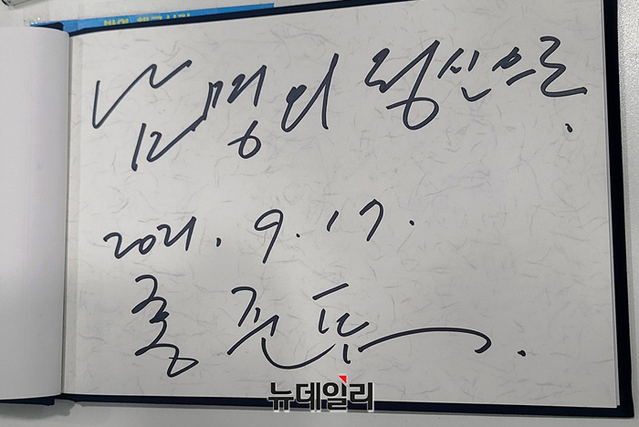 남명의 정신으로.
2021. 9. 17.
홍준표.
뉴데일리